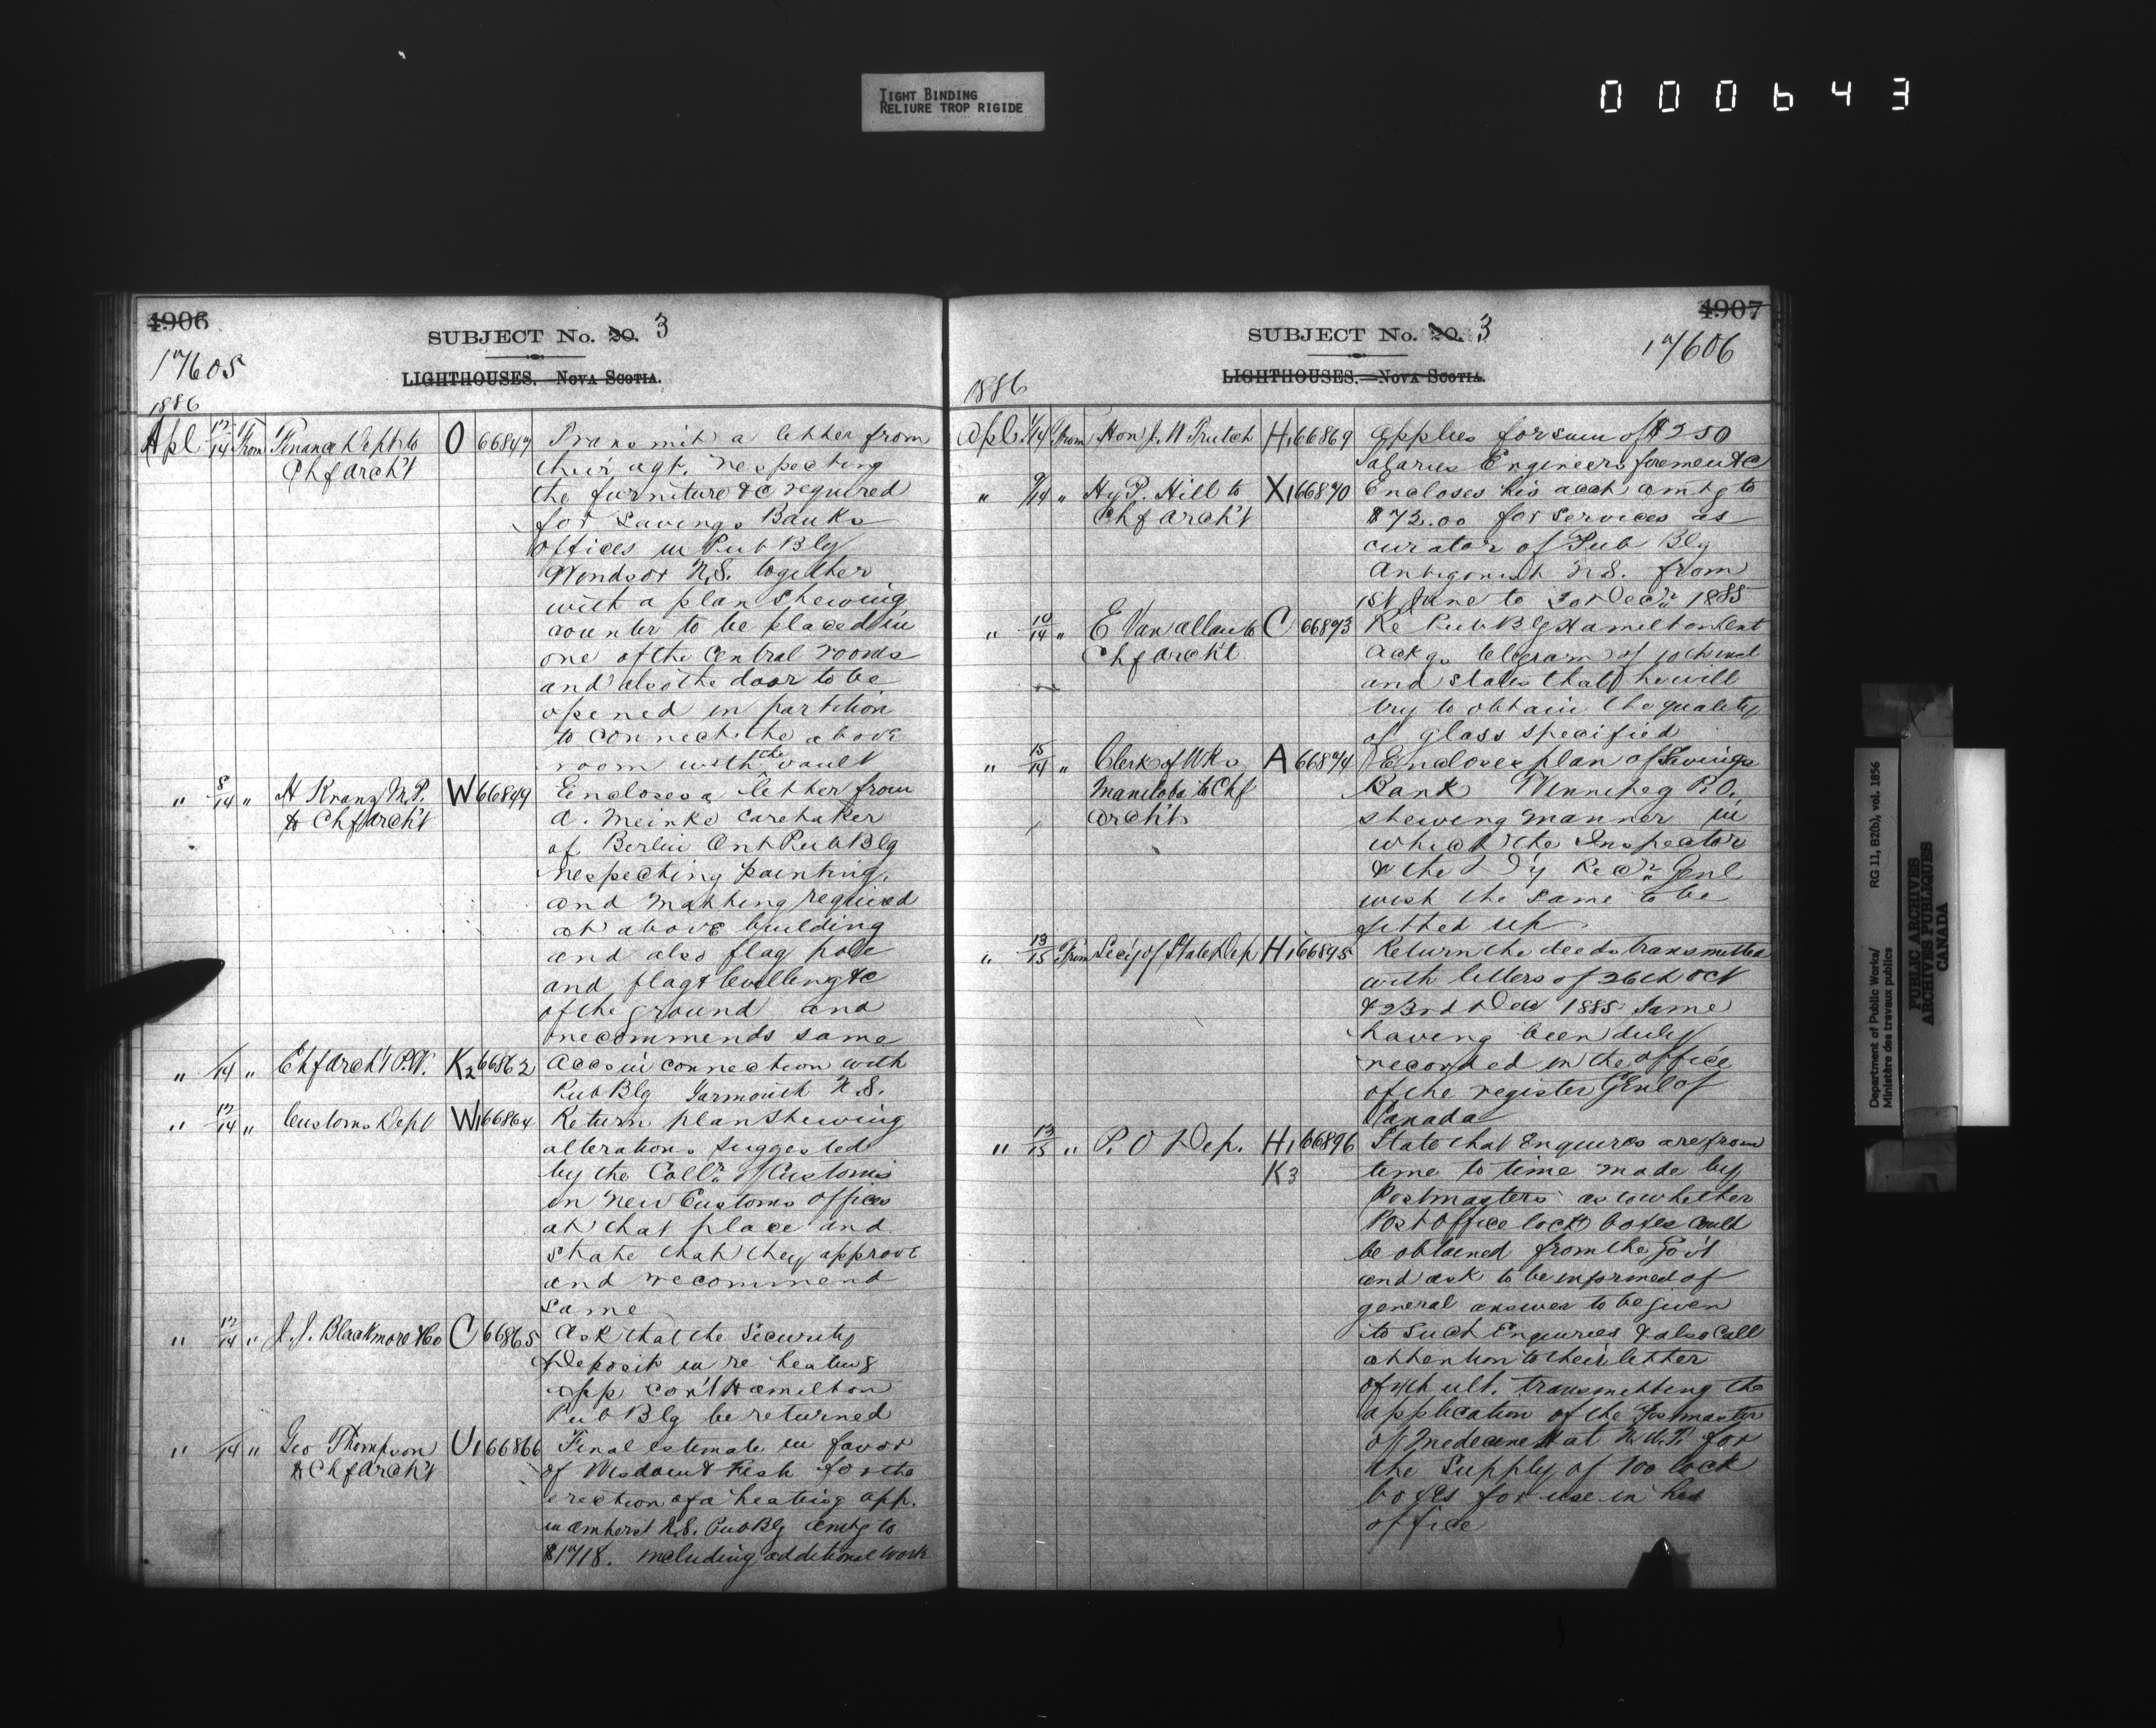 TIGHT BINDING
RELIURE TROP RIGIDE
000643
4906
SUBJECT No. 20. 3
17605
LIGHTHOUSES. NOVA SCOTIA.
1886
Apl 12/14 From Finance Dept to O 66847 Transmit a letter from
Chf Arch't their agt. respecting
the furniture &c required
for Savings Banks
Offices in Pub Blg
Windsor N.S. together
with a plan shewing
counter to be placed in
one of the central rooms
and also the door to be
opened in partition
to connect the above
room with the vault
" 8/14 " H Kranz M.P. W 66849 Encloses a letter from
to Chf Arch't A. Meinke caretaker
of Berlin Ont Pub Blg
respecting painting,
and matting required
at above building
and also flag pole
and flag & levelling &c
of the ground and
recommends same
" /14 " Chf Arch't P.W. K2 66862 Accs in connection with
Pub Blg Yarmouth N.S.
" 12/14 " Customs Dept W1 66864 Return plan shewing
alterations suggested
by the Collr. of Customs
in new Customs offices
at that place and
state that they approve
and recommend
same
" 12/14 " J. J. Blackmore & Co C 66865 Ask that the Security
Deposit in re heating
app con't Hamilton
Pub Blg be returned
" /14 " Geo Thompson U1 66866 Final estimate in favor
to Chf Arch't of Wisdom & Fish for the
erection of a heating app.
in Amherst N.S. Pub Blg amtg to
$1718. including additional work
4907
SUBJECT No. 20. 3
17606
LIGHTHOUSES. NOVA SCOTIA.
1886
Apl /14 From Hon J. W Trutch H1 66869 Applies for sum of $250
Salaries Engineers foremen &c
" 9/14 " Hy P. Hill to X1 66870 Encloses his acct amtg to
Chf Arch't $72.00 for services as
curator of Pub Blg
Antigonish N.S. from
1st June to Decr 1885
" 10/14 " E Van Allan to C 66873 Re Pub Blg Hamilton Ont
Chf Arch't Ackgs telegram of 10th inst
and states that he will
try to obtain the quality
of glass specified
" 15/14 " Clerk of Wks A 66874 Encloses plan of Savings
Manitoba to Chf Bank Winnipeg P.O.
Arch't shewing manner in
which the Inspector
& the D'y Recr Genl
wish the same to be
fitted up
" 13/15 From Sec'y of State Dep H1 66895 Return the deeds transmitted
with letters of 26th Oct
& 23rd Dec 1885 same
having been duly
recorded in the office
of the register Genl of
Canada
" 13/15 " P. O Dep. H1 66896 State that Enquires are from
K3 time to time made by
Postmasters as to whether
Post Office lock boxes could
be obtained from the Gov't
and ask to be informed of
general answer to be given
to such Enquiries & also call
attention to their letter
of ult. transmitting the
application of the Postmaster
of Medecine Hat N.W.T. for
the Supply of 100 lock
boxes for use in his
office
Department of Public Works/
Ministère des travaux publics
RG 11, B2(b), vol. 1856
PUBLIC ARCHIVES
ARCHIVES PUBLIQUES
CANADA